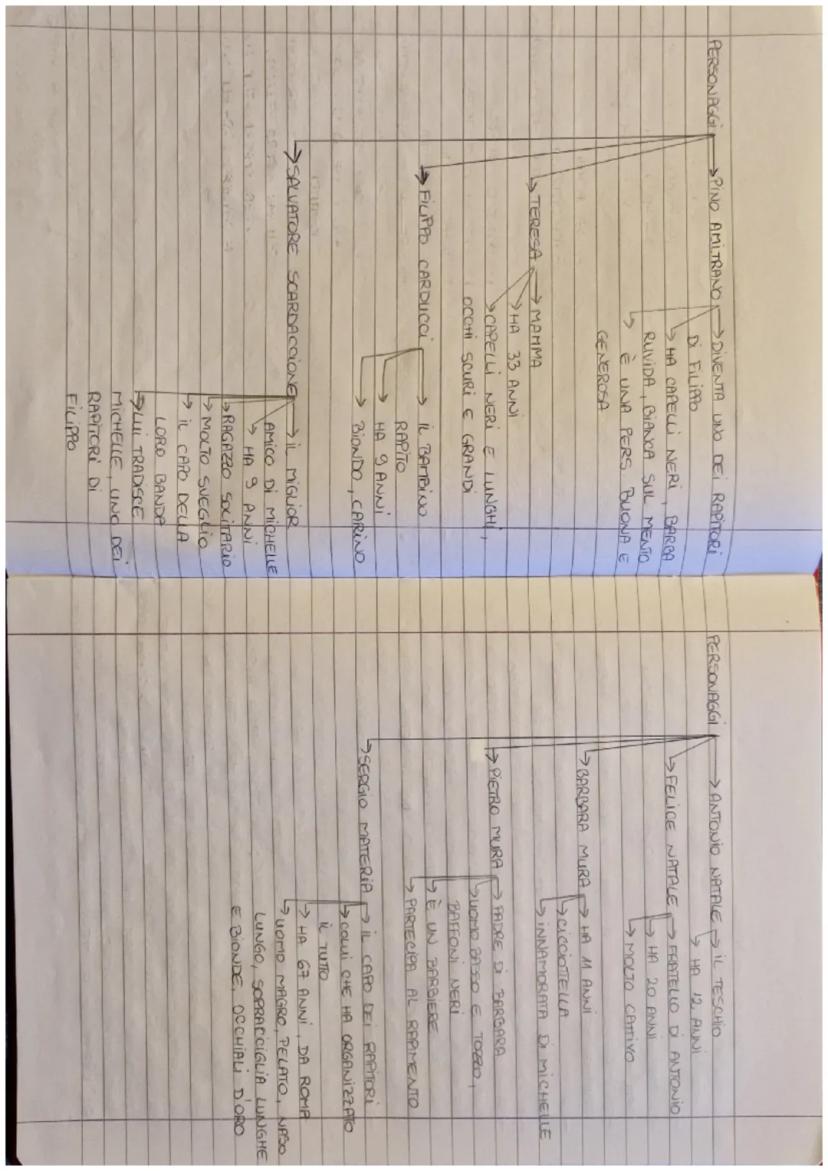 PERSONAGGI → PINO AMITRANO → DIVENTA UNO DEI RAPITORI
DI FILIPPO
→ HA CAPELLI NERI, BARBA
RUVIDA, BIANCA SUL MENTO
→ È UNA PERS BUONA E
GENEROSA
→ TERESA → MAMMA
→ HA 33 ANNI
→ CAPELLI NERI E LUNGHI,
OCCHI SCURI E GRANDI
→ FILIPPO CARDUCCI → IL BAMBINO
RAPITO
→ HA 9 ANNI
→ BIONDO, CARINO
→ SALVATORE SCARDACCIONE → IL MIGLIOR
AMICO DI MICHELLE
→ HA 9 ANNI
→ RAGAZZO SOLITARIO
→ MOLTO SVEGLIO
→ IL CAPO DELLA
LORO BANDA
→ LUI TRADISCE
MICHELLE, UNO DEI
RAPITORI DI
FILIPPO
PERSONAGGI → ANTONIO NATALE → IL TESCHIO
→ HA 12 ANNI
→ FELICE NATALE → FRATELLO DI ANTONIO
→ HA 20 ANNI
→ MOLTO CATTIVO
→ BARBARA MURA → HA 11 ANNI
→ CICCIOTTELLA
→ INNAMORATA DI MICHELLE
→ PIETRO MURA → PADRE DI BARBARA
→ UOMO BASSO E TOZZO,
BAFFONI NERI
→ È UN BARBIERE
→ PARTECIPA AL RAPIMENTO
→ SERGIO MATERIA → IL CAPO DEI RAPITORI
→ COLUI CHE HA ORGANIZZATO
IL TUTTO
→ HA 67 ANNI, DA ROMA
→ UOMO MAGRO, PELATO, NASO
LUNGO, SOPRACCIGLIA LUNGHE
E BIONDE, OCCHIALI D'ORO